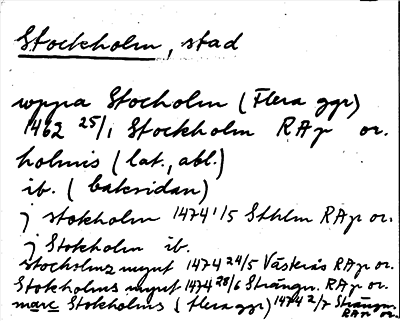 Stockholm, stad
uppa Stocholm (flera ggr)
1462 25/1 Stockholm RAp or.
holmis (lat., abl.)
ib. (baksidan)
j stokholm 1474 1/5 Sthlm RAp or.
j Stokholm ib.
stocholmz mynt 1474 24/5 Västerås RAp or.
Stokholms mynt 1474 28/6 Strängn. RAp or.
marc Stokholms (flera ggr) 1474 2/7 Strängn.
RAp or.